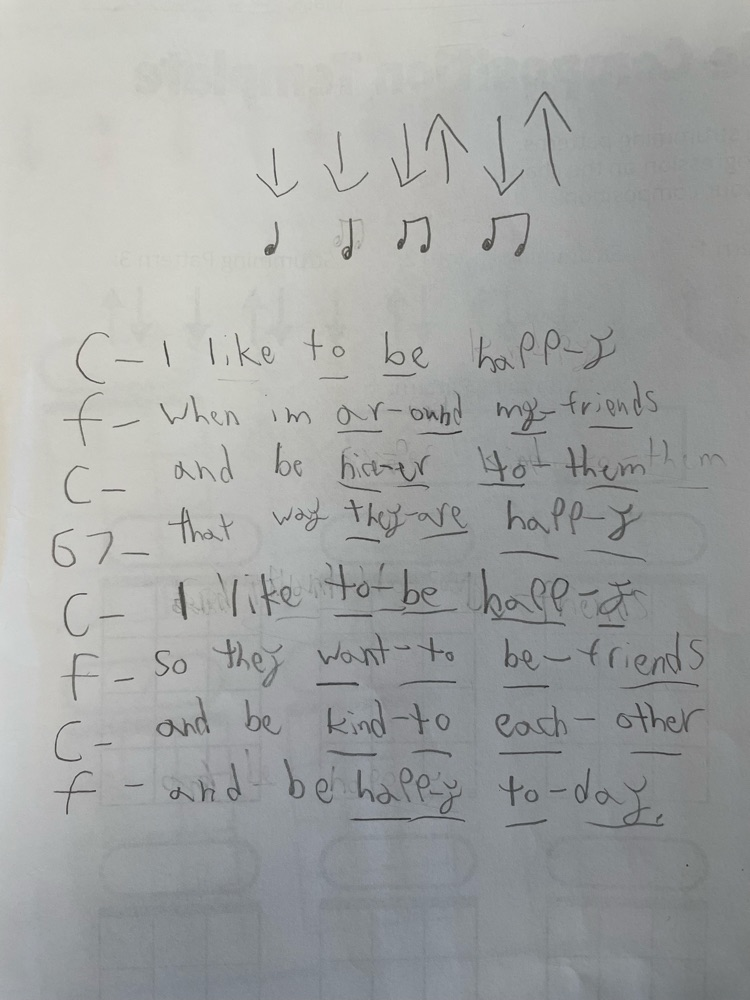 C - I like to be happ-y
f - when im ar-ound my-friends
C - and be to-them
G7 - that way they-are happ-y
C - I like to-be happ-y
f - so they want-to be-friends
C - and be kind-to each-other
f - and be happ-y to-day.